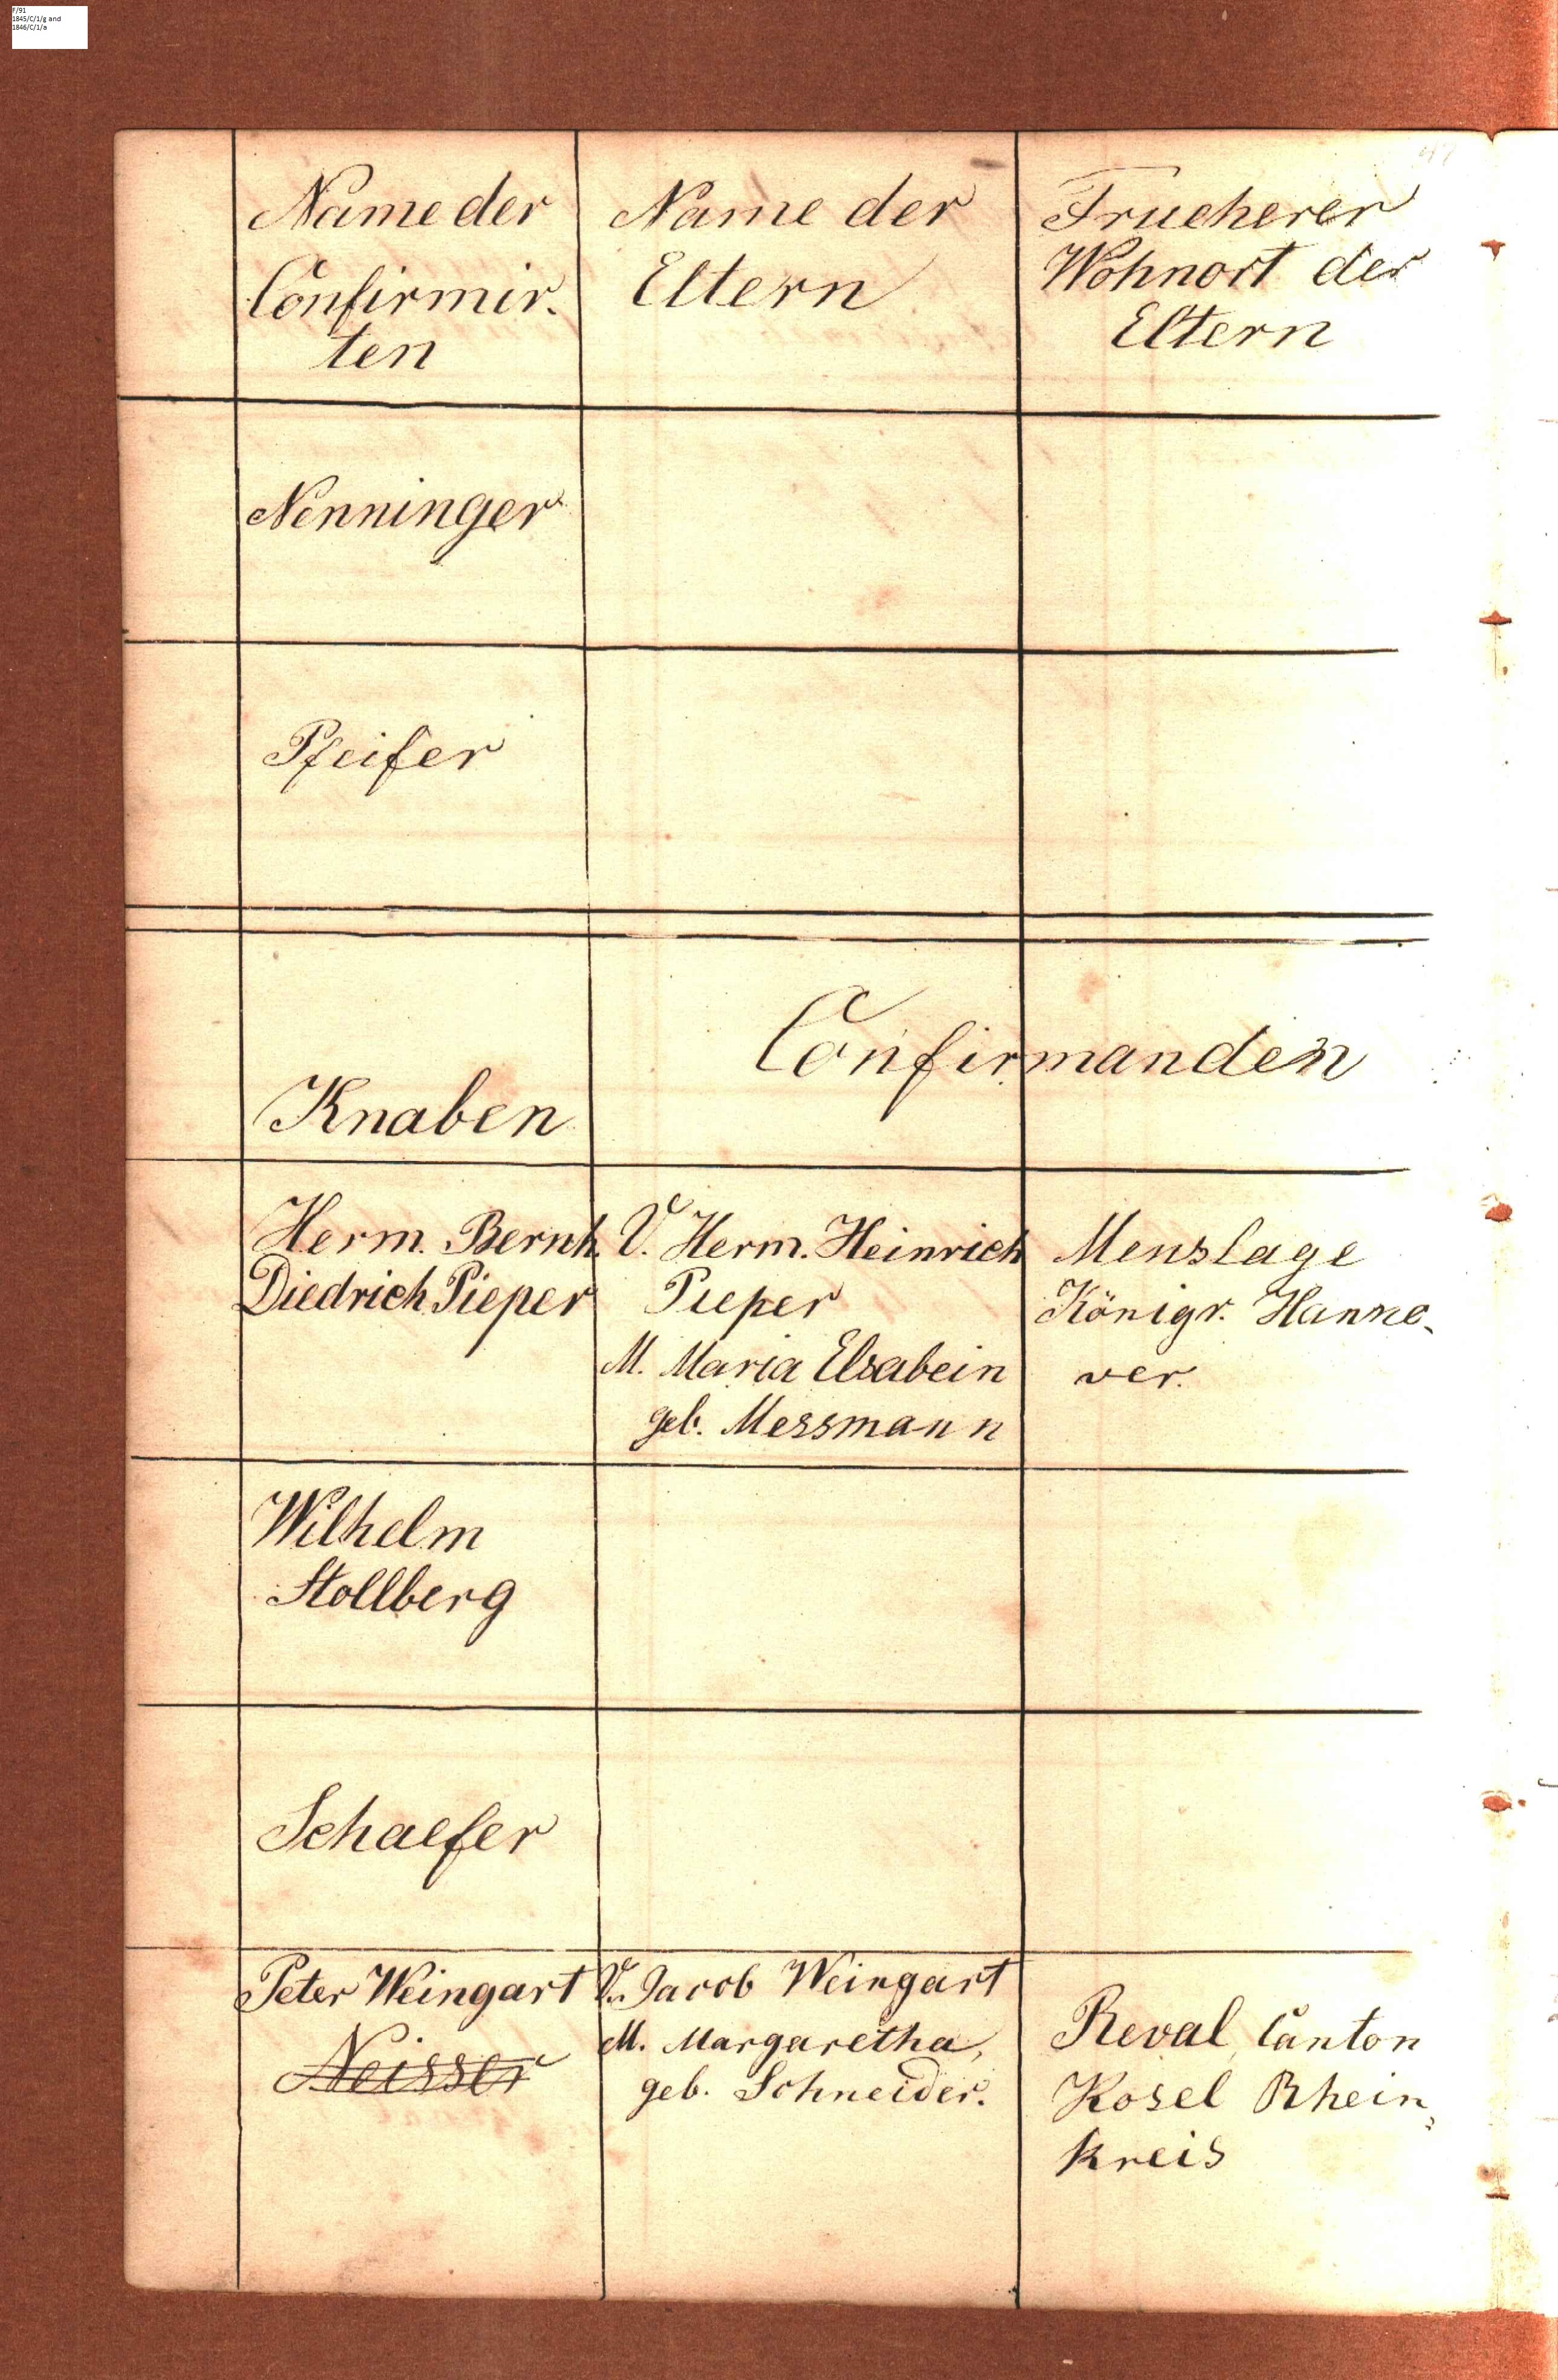 F/91
1845/C/1/g and
1846/C/1/a
47
Name der
Confirmir-
ten
Name der
Eltern
Frueherer
Wohnort der
Eltern
Nenninger
Pfeifer
Knaben
Confirmanden
Herm. Bernh.
Diedrich Pieper
V. Herm. Heinrich
Pieper
M. Maria Elsabein
geb. Messmann
Menslage
Königr. Hanno-
ver.
Wilhelm
Stollberg
Schaefer
Peter Weingart
Neisser
V. Jacob Weingart
M. Margaretha,
geb. Schneider.
Reval, Canton
Kosel Rhein-
kreis